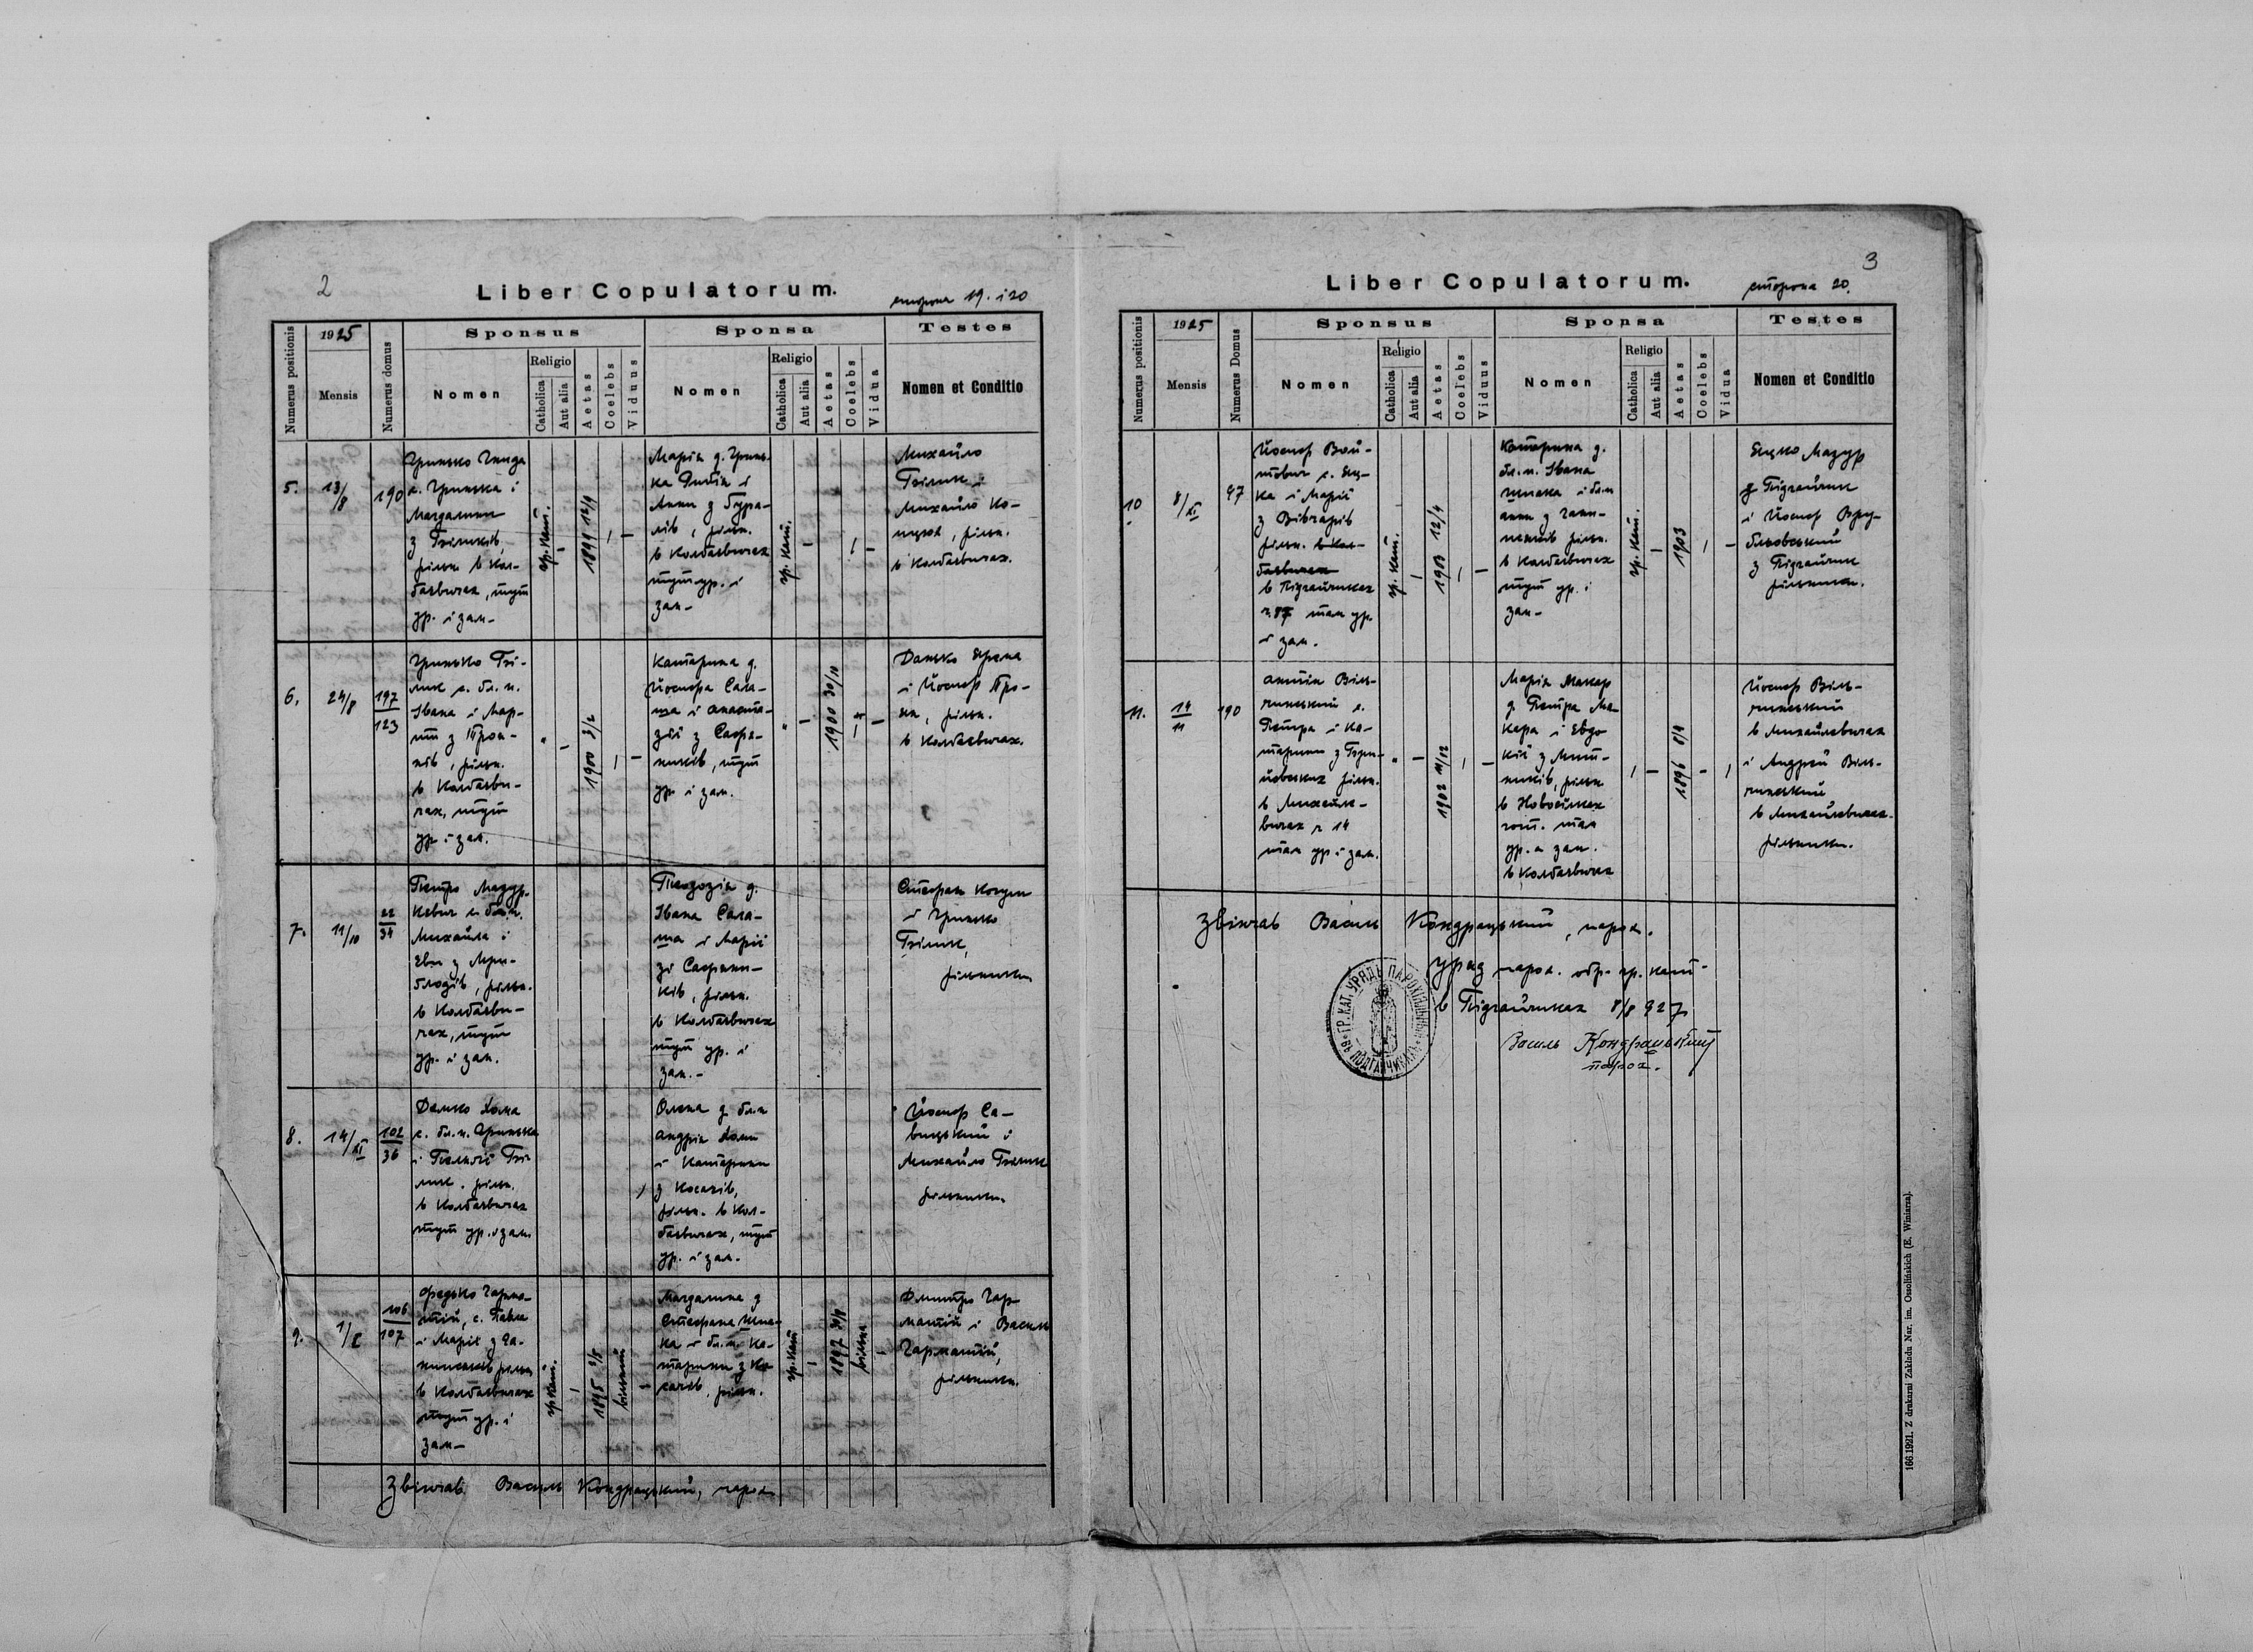 2
Liber Copulatorum.
сторона 19. і 20
Numerus positionis
1925
Mensis
Numerus domus
Sponsus
Nomen
Religio
Catholica
Aut alia
Aetas
Coelebs
Viduus
Sponsa
Nomen
Religio
Catholica
Aut alia
Aetas
Coelebs
Vidua
Testes
Nomen et Conditio
5.
13/8
190
Гринько
с. Гринька і
Магдалини
з Гіликів,
рільн. в Кол-
баєвичах, тут
ур. і зам. –
гр. кат.
–
1899 12/9
/
–
Марія д. Гринь-
ка і
Анни з Бура-
лів, рільн.
в Колбаєвичах
тут ур. і
зам –
гр. кат.
–
/
–
Михайло
Гілик і
Михайло Ко-
, рільн.
в Колбаєвичах.
6.
24/8
197
123
Гринько Гі-
лик с. бл. п.
Івана і Мар-
ти з
нів, рільн.
в Колбаєви-
чах, тут
ур. і зам.
"
–
1900 3/2
/
–
Катерина д.
Йосифа Сала-
ша і Анаста-
зії з Сафя-
ників, тут
ур. і зам.
"
–
1900 30/10
–
Данько
і Йосиф
, рільн.
в Колбаєвичах.
7.
11/10
22
34
Петро Мазур-
кевич с. бл. п.
Михайла і
Еви з
, рільн.
в Колбаєви-
чах, тут
ур. і зам.
Теодозія д.
Івана Сала-
ша і Марії
зі Сафяни-
ків, рільн.
в Колбаєвичах
тут ур. і
зам. –
Стефан
і Гринько
Гілик,
рільники
8.
14/XI
102
36
Данько Хома
с. бл. п. Гринька
і Пелагії Гі-
лик. рільн.
в Колбаєвичах
тут ур. і зам.
Олена д. бл. п.
Андрія Хоми
і Катерини
з Косачів,
рільн. в Кол-
баєвичах, тут
ур. і зам.
Йосиф Са-
вицький і
Михайло Гілик
рільники.
9.
106
107
Федько Гарма-
тій, с. Павла
і Марії з
рільн.
в Колбаєвичах
тут ур. і
зам –
гр. кат.
–
1895
вільний
–
Магдалина д.
Стефана
ка і бл. п. Ка-
тарини з Ко-
сачів, рільн.
гр. кат.
–
1897
вільна
–
Дмитро Гар-
матій і Василь
Гарматій,
рільники.
Звінчав Василь Кондрацький, парох
3
Liber Copulatorum.
сторона 20.
Numerus positionis
1925
Mensis
Numerus Domus
Sponsus
Nomen
Religio
Catholica
Aut alia
Aetas
Coelebs
Viduus
Sponsa
Nomen
Religio
Catholica
Aut alia
Aetas
Coelebs
Vidua
Testes
Nomen et Conditio
10
8/XI
97
Йосиф Вой-
тович с. Яц-
ка і Марії
з Вівчарів
рільн. в Кол-
баєвичах
в Підгайчиках
ч. 87 там ур.
і зам.
гр. кат.
–
1903 12/4
/
–
Катерина д.
бл. п. Івана
і бл. п.
Анни з
рільн.
в Колбаєвичах
тут ур. і
зам –
гр. кат.
–
1903
/
–
Яцко Мазур
з Підгайчик
і Йосиф Вру-
бльовський
з Підгайчик
рільники.
11.
14
11
190
Антін Віль-
чинський с.
Петра і Ка-
тарини з
рільн.
в Михайле-
вичах ч 14
там ур. і зам.
"
–
1902 11/12
/
–
Марія Макар
д. Петра Ма-
кара і Евдо-
кії з Мит-
ників, рільн.
в Новосілках
гост. там
ур. а зам.
в Колбаєвичах
/
–
1896 8/4
–
/
Йосиф Віль-
чинський
в Михайлевичах
і Андрей Віль-
чинський
в Михайлевичах.
рільники.
Звінчав Василь Кондрацький, парох.
Уряд парох. обр. гр. кат.
в Підгайчиках 8/8 927
Василь Кондрацький
парох.
166.1921. Z drukarni Zakładu Nar. im. Ossolińskich (E. Winiarza).